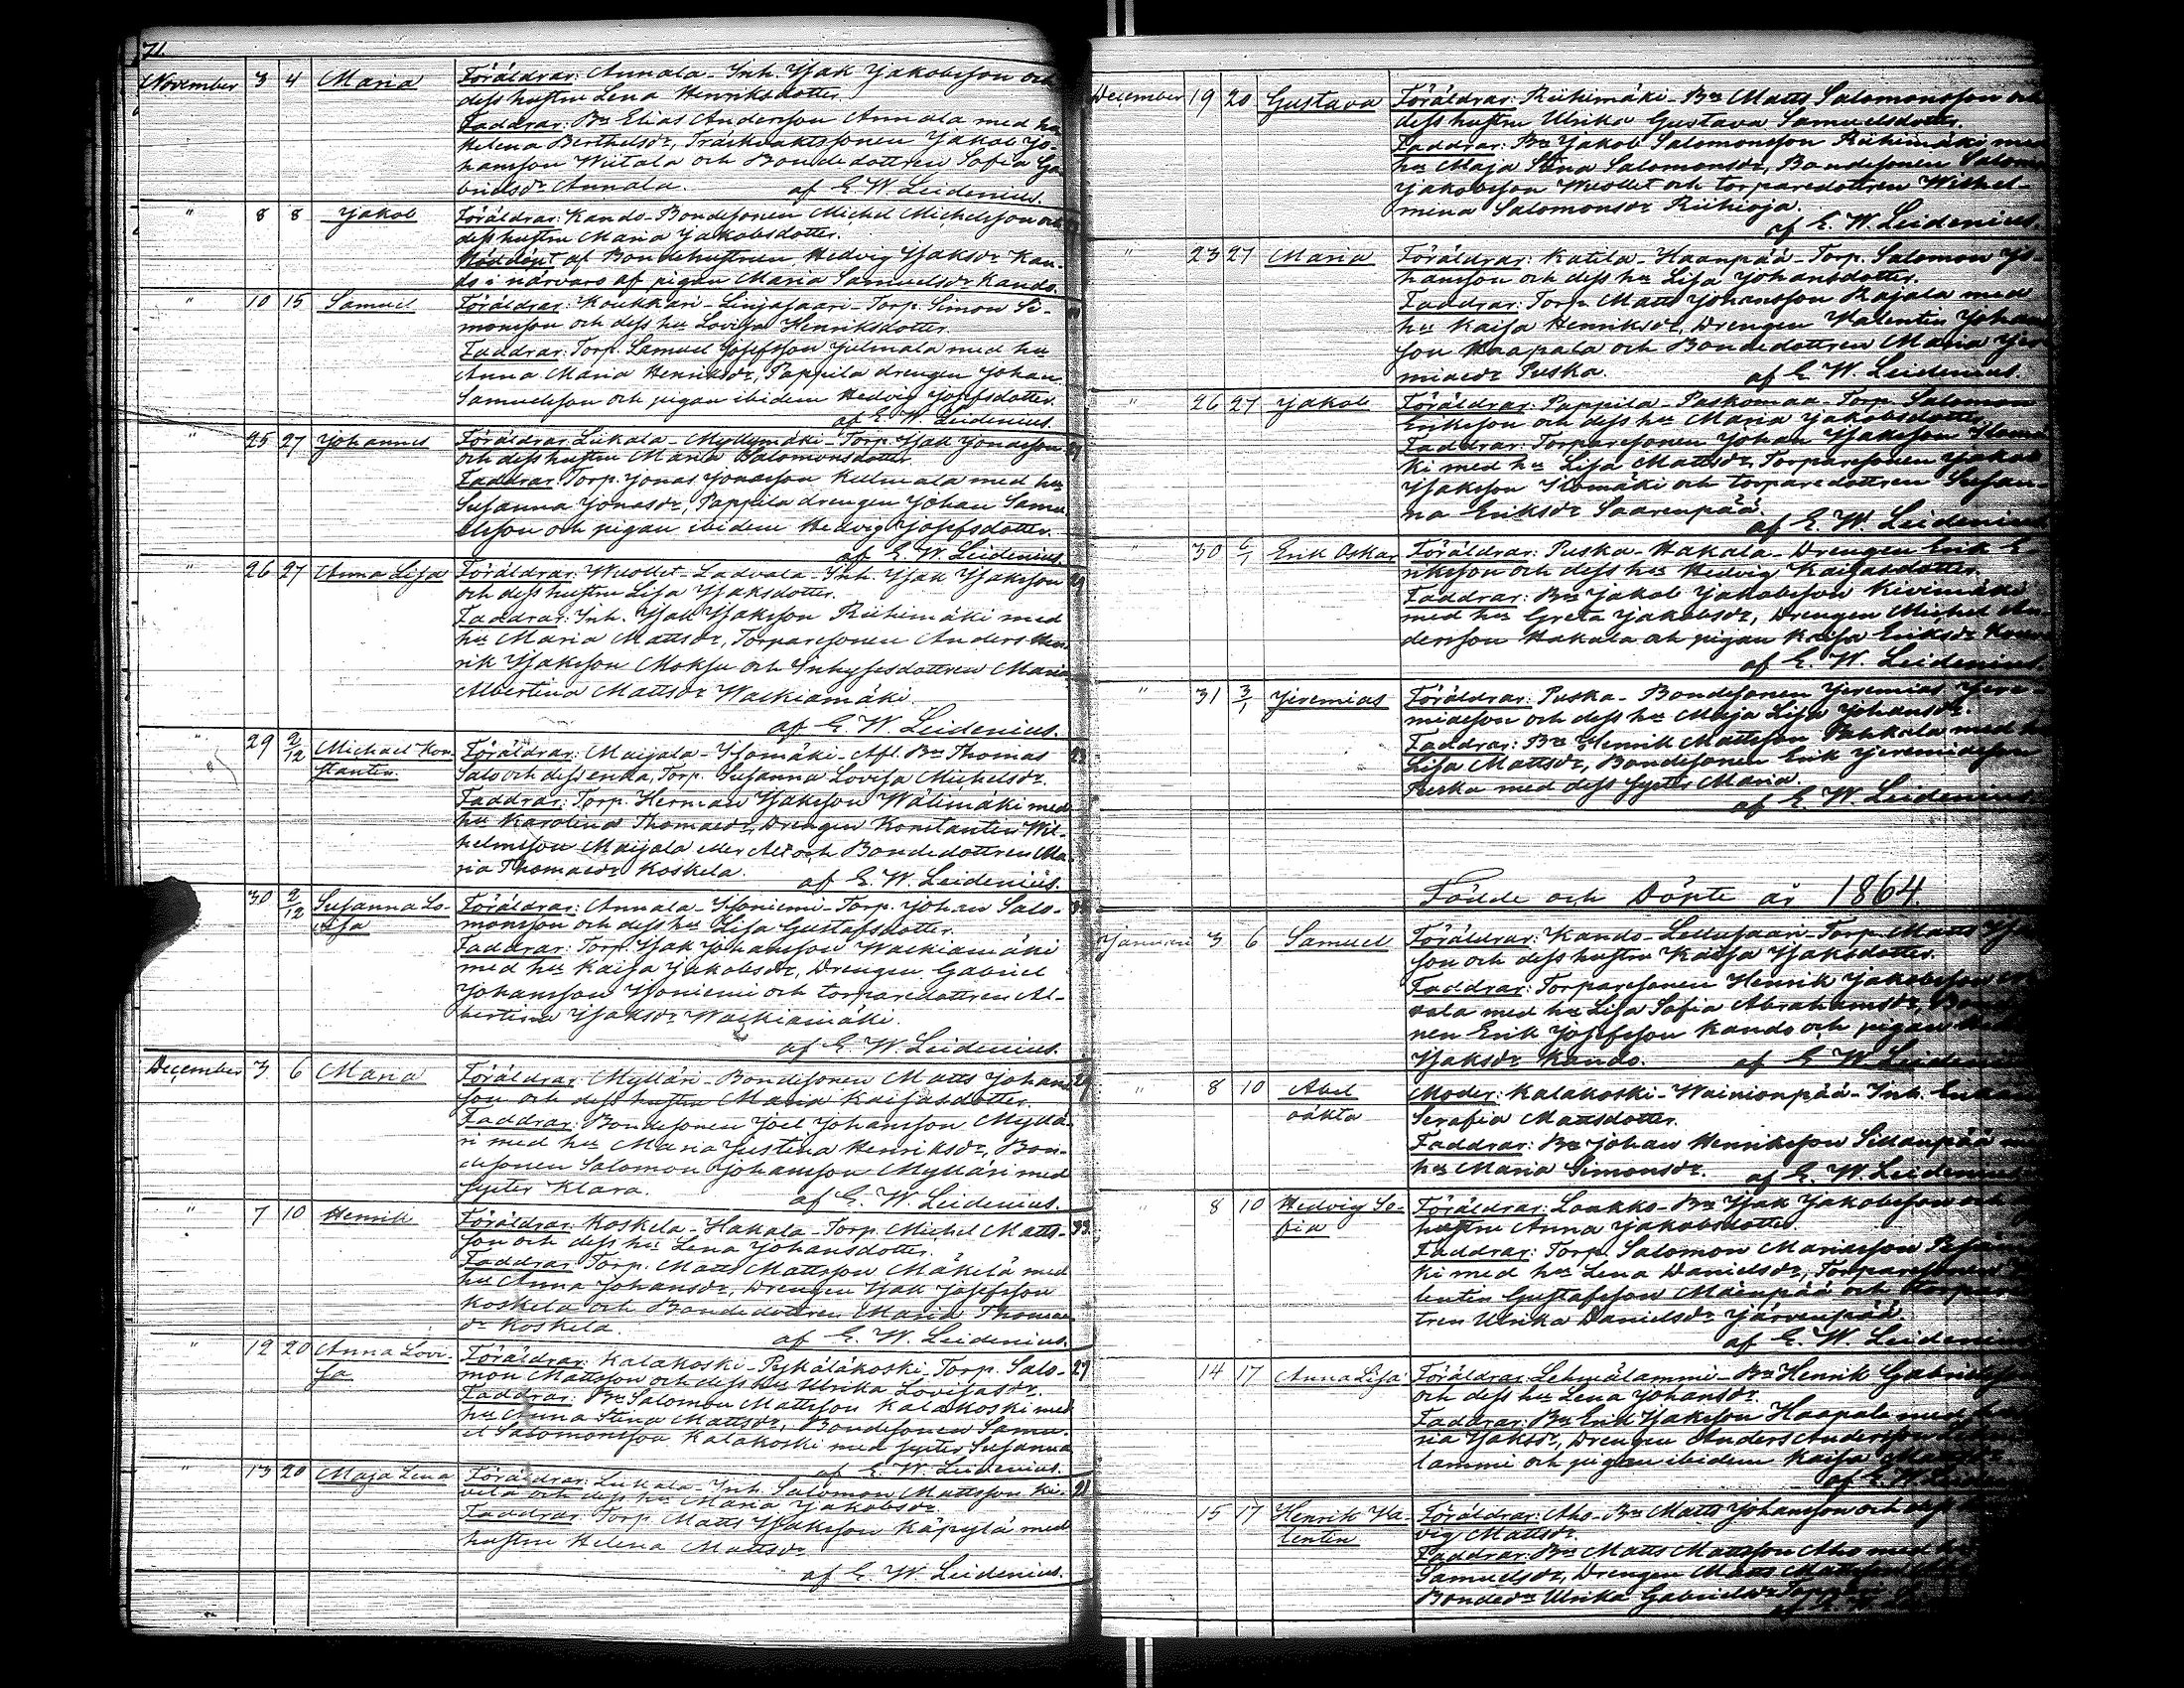 71.
November 3 4 Maria Föräldrar: Annala - Inh. Isak Jakobsson och
dess hustru Lena Henriksdotter.
Faddrar: Bn Elias Andersson Annala med hu
Helena Berthelsdr, Jakob Jo-
hansson Wiitala och Bondedottren Sofia Ga-
brielsdr Annala. af E. W. Leidenius.
" 8 8 Jakob Föräldrar: Kando - Bondesonen Michel Michelsson och
dess hustru Maria Jakobsdotter.
Nöddöpt af Bondehustrun Hedvig Isaksdr Kan-
do i närvaro af pigan Maria Samuelsdr Kando.
" 10 15 Samuel Föräldrar: Koukkari - Linjasaari - Torp. Simon Si-
monsson och dess hu Lovisa Henriksdotter.
Faddrar: Torp. Samuel Josefsson Julmala med hu
Anna Maria Henriksdr, Pappila drengen Johan
Samuelsson och pigan ibidem Hedvig Josefsdotter.
af E. W. Leidenius.
" 25 27 Johannes Föräldrar: Liikala - Myllymäki - Torp. Isak Jonasson
och dess hustru Maria Salomonsdotter.
Faddrar: Torp. Jonas Jonasson Kulmala med hu
Susanna Jonasdr, Pappila drengen Johan Samu-
elsson och pigan ibidem Hedvig Josefsdotter.
af E. W. Leidenius.
" 26 27 Anna Lisa Föräldrar: Wuollet - Ladvala - Inh. Isak Isaksson
och dess hustru Lisa Isaksdotter.
Faddrar: Inh. Isak Isaksson Riihimäki med
hu Maria Mattsdr, Torparesonen Anders Hen-
rik Isaksson Moksu och Inhysesdottren Maria
Albertina Mattsdr Waekiamäki.
af E. W. Leidenius.
" 29 2/12 Michael Kon- Föräldrar: Maijala - Isomäki - Afl. Bn Thomas
stantin. Salo och dess enka, Torp. Susanna Lovisa Michelsdr.
Faddrar: Torp. Herman Isaksson Wälimäki med
hu Karolina Thomasdr, Drengen Konstantin Wil-
helmsson Maijala och Bondedottren Ma-
ria Thomasdr Koskela. af E. W. Leidenius.
" 30 2/12 Susanna Lo- Föräldrar: Annala - Isoniemi - Torp. Johan Salo-
visa monsson och dess hu Lisa Gustafsdotter.
Faddrar: Torp. Isak Johansson Waekiamäki
med hu Kaisa Jakobsdr, Drengen Gabriel
Johansson Isoniemi och torparedottren Al-
bertina Isaksdr Waekiamäki.
af E. W. Leidenius.
December 3 6 Maria Föräldrar: Mylläri - Bondesonen Matts Johans-
son och dess hustru Maria Kaisasdotter.
Faddrar: Bondesonen Joel Johansson Myllä-
ri med hu Maria Justina Henriksdr, Bon-
desonen Salomon Johansson Mylläri med
syster Klara. af E. W. Leidenius.
" 7 10 Henrik Föräldrar: Koskela - Hakala - Torp. Michel Matts-
son och dess hu Lena Johansdotter.
Faddrar: Torp. Matts Mattsson Mäkelä med
hu Anna Johansdr, Drengen Isak Josefsson
Koskela och Bondedottren Maria Thomas-
dr Koskela. af E. W. Leidenius.
" 12 20 Anna Lovi- Föräldrar: Kalakoski - Pykäläkoski - Torp. Salo-
sa mon Mattsson och dess hu Ulrika Lovisasdr.
Faddrar: Bn Salomon Mattsson Kalakoski med
hu Anna Stina Mattsdr, Bondesonen Samu-
el Salomonsson Kalakoski med syster Susanna
af E. W. Leidenius.
" 13 20 Maja Lena Föräldrar: Liikala - Inh. Salomon Mattsson Ki-
velä och dess hu Maria Jakobsdr.
Faddrar: Torp. Matts Isaksson Käpylä med
hustru Helena Mattsdr
af E. W. Leidenius.
December 19 20 Gustava Föräldrar: Riihimäki - Bn Matts Salomonsson och
dess hustru Ulrika Gustava Samuelsdotter.
Faddrar: Bn Jakob Salomonsson Riihimäki med
hu Maja Stina Salomonsdr, Bondesonen Salomon
Jakobsson Wuollet och torparedottren Wilhel-
mina Salomonsdr Riihioja.
af E. W. Leidenius.
" 23 27 Maria Föräldrar: Katila - Haanpää - Torp. Salomon Jo-
hansson och dess hu Lisa Johansdotter.
Faddrar: Torp. Matts Johansson Rajala med
hu Kaisa Henriksdr, Drengen Valentin Johans-
son Haapala och Bondedottren Maria Jere-
miaedr Puska. af E. W. Leidenius.
" 26 27 Jakob Föräldrar: Pappila - Paskomaa - Torp. Salomon
Eriksson och dess hu Maria Jakobsdotter.
Faddrar: Torparesonen Johan Isaksson Ilomä-
ki med hu Lisa Mattsdr, Torparesonen Jakob
Isaksson Ilomäki och torparedottren Susan-
na Eriksdr Saarenpää.
af E. W. Leidenius.
" 30 6/1 Erik Oskar Föräldrar: Puska - Hakala - Drengen Erik E-
riksson och dess hu Hedvig Kaisasdotter.
Faddrar: Bn Jakob Jakobsson Kivimäki
med hu Greta Jakobsdr, Drengen Michel An-
dersson Hakala och pigan Kaisa Eriksdr
af E. W. Leidenius.
" 31 3/1 Jeremias Föräldrar: Puska - Bondesonen Jeremias Jere-
miasson och dess hu Maja Lisa Johansdr.
Faddrar: Bn Henrik Mattsson Pahkala med hu
Lisa Mattsdr, Bondesonen Erik Jeremiasson
Puska med dess syster Maria.
af E. W. Leidenius.
Födde och Döpte år 1864.
Januari 3 6 Samuel Föräldrar: Kando - Lellusaari - Torp. Matts
son och dess hustru Kaisa Isaksdotter.
Faddrar: Torparesonen Henrik Jakobsson
vala med hu Lisa Sofia Abrahamsdr,
nen Erik Josefsson Kando och pigan
Isaksdr Kando. af E. W. Leidenius
" 8 10 Abel Moder: Kalakoski - Wainionpää - Inh. Enkan
oäkta Serafia Mattsdotter.
Faddrar: Bn Johan Henriksson Sillanpää med
hu Maria Simonsdr. af E. W. Leidenius
" 8 10 Hedvig So- Föräldrar: Laakko - Bn Isak Jakobsson och
fia hustru Anna Jakobsdotter.
Faddrar: Torp. Salomon Mariasson
ki med hu Lena Danielsdr, Torparesonen
lentin Gustafsson Mäenpää och
tren Ulrika Danielsdr Järvenpää.
af E. W. Leidenius
14 17 Anna Lisa Föräldrar: Lehmälammi - Bn Henrik Gabrielsson
och dess hu Lena Johansdr.
Faddrar: Bn Erik Isaksson Haapala med
ria Isaksdr, Drengen Anders Andersson
lammi och pigan ibidem Kaisa
af E. W.
15 17 Henrik Va- Föräldrar: Aho - Bn Matts Johansson och dess
lentin vig Mattsdr.
Faddrar: Bn Matts Mattsson Aho med
Samuelsdr, Drengen Matts
Bondedr Ulrika Gabrielsdr